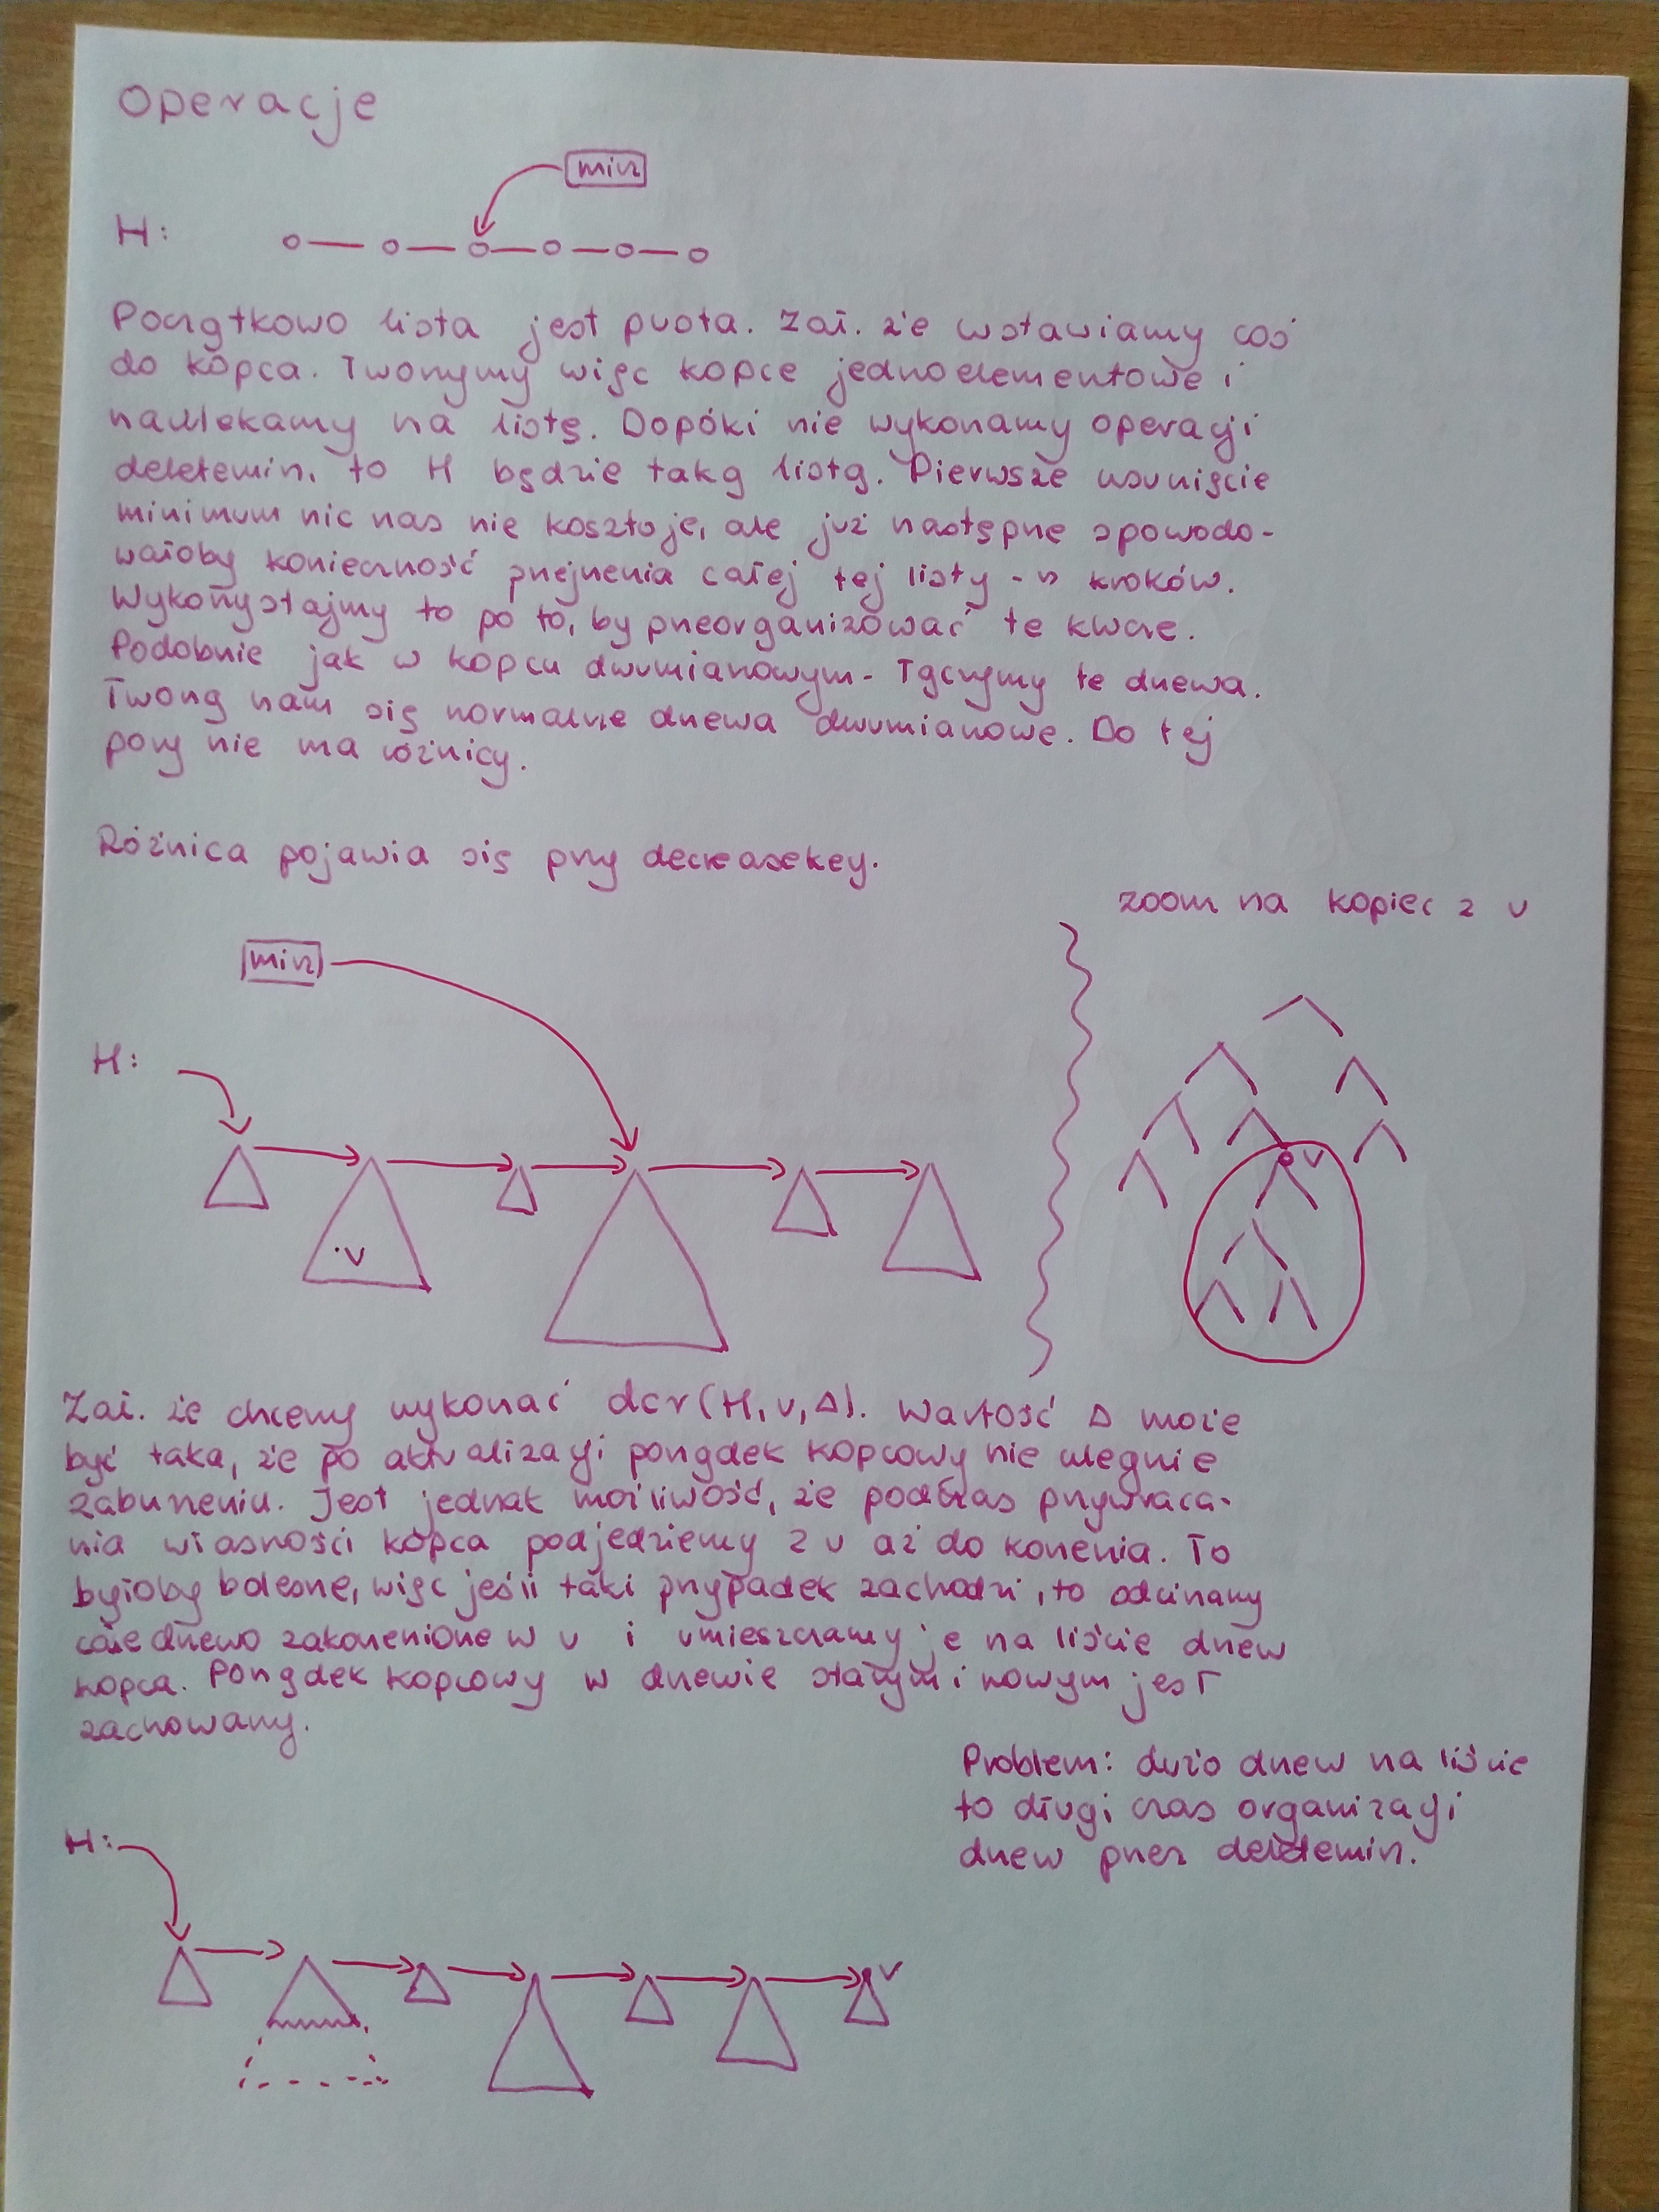 Operacje
min
H:
Początkowo lista jest pusta. Zał. że wstawiamy coś
do kopca. Tworzymy więc kopce jednoelementowe i
nawlekamy na listę. Dopóki nie wykonamy operacji
deletemin, to H będzie taką listą. Pierwsze usunięcie
minimum nic nas nie kosztuje, ale już następne spowodo-
wałoby konieczność przejrzenia całej tej listy - n kroków.
Wykorzystajmy to po to, by przeorganizować te kopce.
Podobnie jak w kopcu dwumianowym - łączymy te drzewa.
Tworzą nam się normalne drzewa dwumianowe. Do tej
pory nie ma różnicy.
Różnica pojawia się przy decreasekey.
zoom na kopiec z v
min
H:
v
v
Zał. że chcemy wykonać dcr(H, v, Δ). Wartość Δ może
być taka, że po aktualizacji porządek kopcowy nie ulegnie
zaburzeniu. Jest jednak możliwość, że podczas przywraca-
nia własności kopca podjedziemy z v aż do korzenia. To
byłoby bolesne, więc jeśli taki przypadek zachodzi, to odcinamy
całe drzewo zakorzenione w v i umieszczamy je na liście drzew
kopca. Porządek kopcowy w drzewie starym i nowym jest
zachowany.
Problem: dużo drzew na liście
to długi czas organizacji
drzew przez deletemin.
H:
v